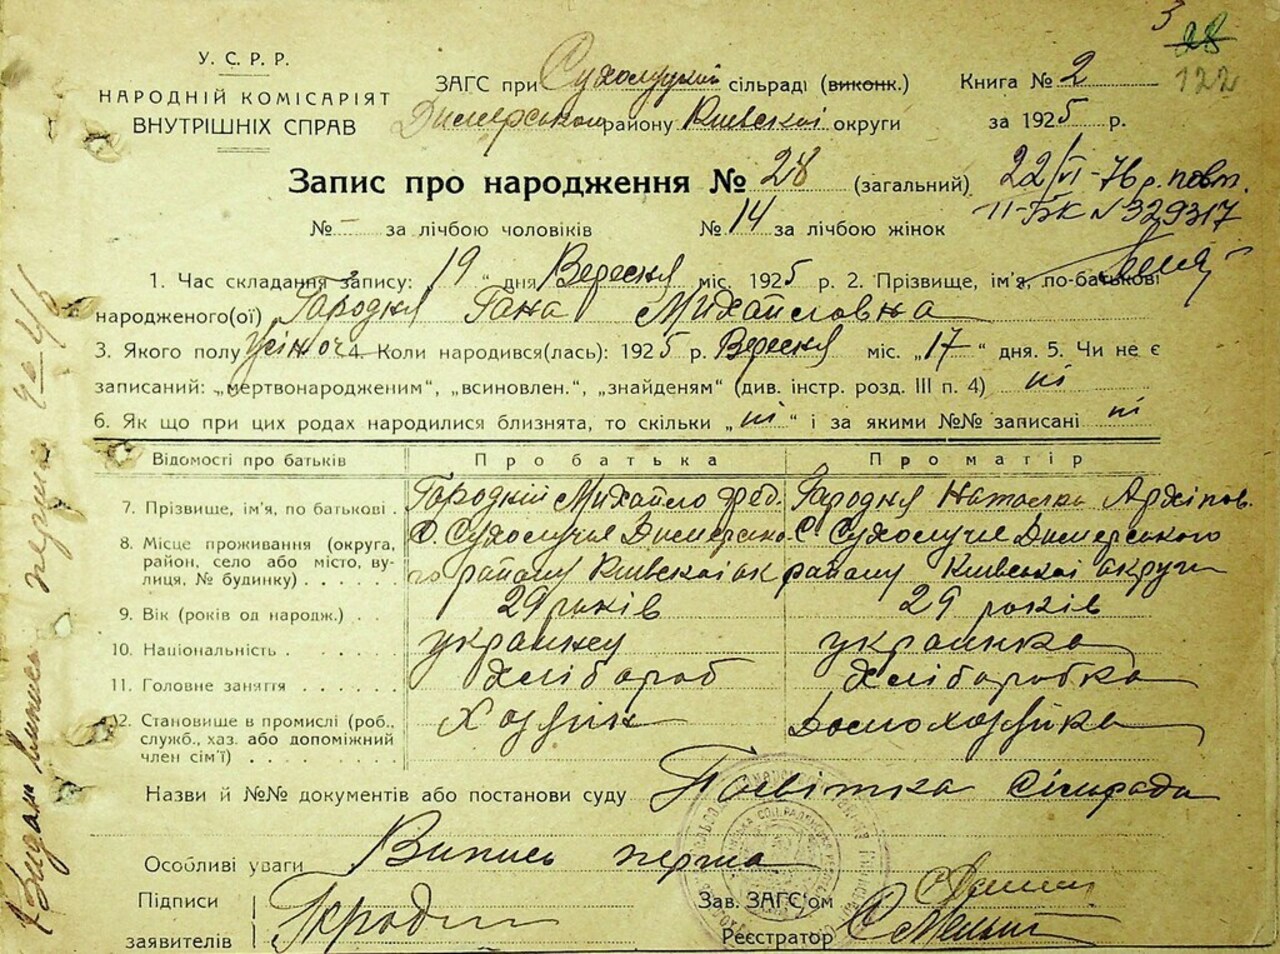 3
28
122
У. С. Р. Р.
НАРОДНІЙ КОМІСАРІЯТ
ВНУТРІШНІХ СПРАВ
ЗАГС при Сухолуцкий сільраді (виконк.)
Димерськом району Киевскоі округи
Книга № 2
за 1925 р.
Запис про народження № 28 (загальний)
22/VI-76 р. повт.
II-БК № 329317
№ – за лічбою чоловіків № 14 за лічбою жінок
1. Час складання запису: „19“ дня Вересня міс. 1925 р. 2. Прізвище, ім'я, по-батькові
народженого(ої) Городня Гана Михайловна
3. Якого полу жіноч 4. Коли народився(лась): 1925 р. Вересня міс. „17“ дня. 5. Чи не є
записаний: „мертвонародженим“, „всиновлен.“, „знайденям“ (див. інстр. розд. III п. 4) ні
6. Як що при цих родах народилися близнята, то скільки „ні“ і за якими №№ записані ні
Відомості про батьків Про батька Про матір
7. Прізвище, ім'я, по батькові . Городній Михайло Фед. Городня Наталка Архіпов.
8. Місце проживання (округа, С. Сухолучья Димерсько- С. Сухолучья Димерського
район, село або місто, ву- го району Киевскоі ок району Киевскоі округи
лиця, № будинку) . . . . .
9. Вік (років од народж.) . 29 років 29 років
10. Національність . . . . . . украинец украинка
11. Головне заняття . . . . . . хлібороб хліборобка
12. Становище в промислі (роб., Хозяін Домохозяйка
служб., хаз. або допоміжний
член сім'ї) . . . . . . . .
Назви й №№ документів або постанови суду Посвітка Сільради
Особливі уваги Випись перша
Підписи Зав. ЗАГС'ом
заявителів Городн Реєстратор
Видан випись перша